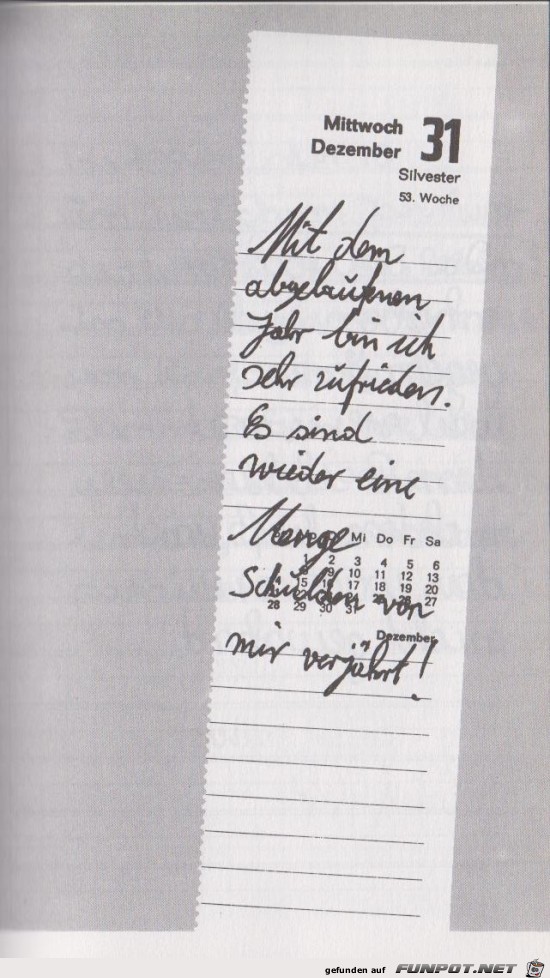 Mittwoch 31
Dezember
Silvester
53. Woche
Mit dem
abgelaufenen
Jahr bin ich
sehr zufrieden.
Es sind
wieder eine
Menge
Mi Do Fr Sa
1 2 3 4 5 6
9 10 11 12 13
15 16 17 18 19 20
Schulden von
27
28 29 30 31
Dezember
mir verjährt!
gefunden auf FUNPOT.NET